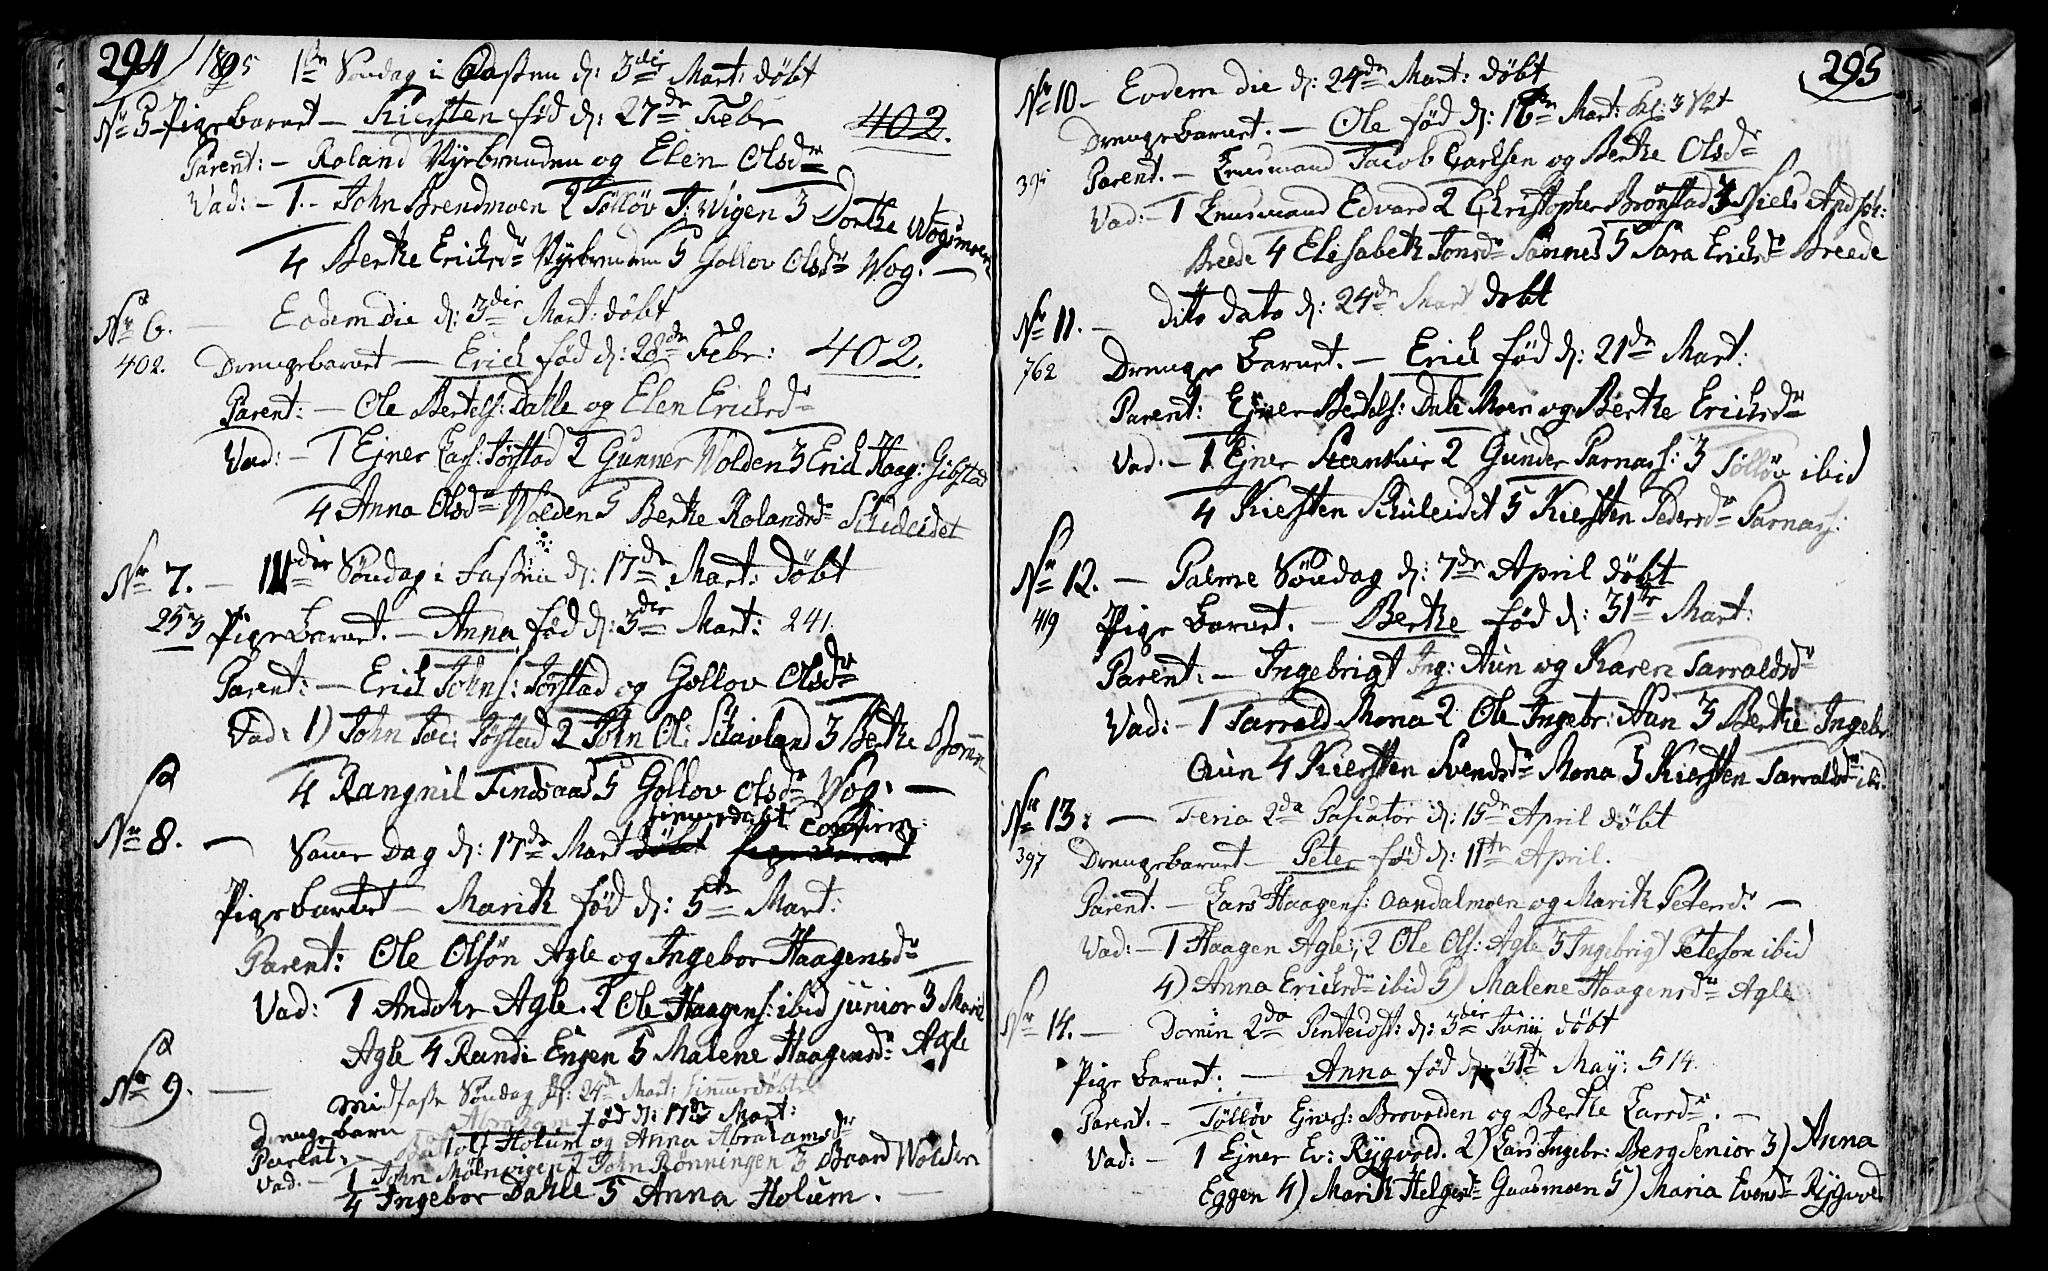 294 / 1805 1ste Søndag i Fasten d: 3die Mart: døbt
No 5 Pigebarnet — Kiersten fød d: 27de Febr 402.
Parent: — Roland Nyebrenden og Elen Olsdr
Vad: — 1 - John Brendmoen 2 Tølløv J: Wigen 3 Dorthe Wogsmoen
4 Berthe Erichsdr Nyebrenden 5 Gollov Olsdr Wog. —
No 6. — Eodem die d: 3die Mart: døbt
402. Drengebarnet — Erich fød d: 28de Febr: 402.
Parent: — Ole Bertels: Dahle og Elen Erichsdr
Vad: — 1 Ejner Lars: Tørstad 2 Gunner Wolden 3 Erich Haag: Gifstad
4 Anna Olsdr Wolden 5 Berthe Rolandsdr
No 7. — III die Søndag i Fasten d: 17de Mart: døbt
253 Pigebarnet. — Anna fød d: 3die Mart: 241.
Parent: — Erich Johns: Tørstad og Gollov Olsdr
Vad: 1) John Jac: Tørstad 2 John Ol: Schavland 3 Berthe
4 Rangnil Findsaas 5 Gollov Olsdr Wog. —
No 8. — Samme Dag d: 17de Mart hiemmedøbt Confirm:
Pigebarnet — Marith fød d: 5te Mart:
Parent: Ole Olsøn Agle og Ingebor Haagensdr
Vad: 1 Andohr Agle. 2 Ole Haagens: ibid junior 3 Marit
Agle 4 Randi Engen 5 Malene Haagensdr Agle
No 9. — Midfaste Søndag d: 24de Mart: hiemmedøbt
Drengebarn fød d: 17de Mart:
Parent: — Holum og Anna Abrahamsdr
Vad. — 1 John Mølnvigen 2 John Rønningen 3 Baard Wolden
4 Ingebor Dahle 5 Anna Holum. —
295
No 10 — Eodem die d: 24de Mart: døbt
Drengebarnet. — Ole fød d: 16de Mart: Kl: 3
395 Parent. — Huusmand Jacob Larhsen og Berthe Olsdr
Vad: — 1 Huusmand Edvard 2 Christopher Brønstad 3 Niels
Breede 4 Elisabeth Jonsdr Sannes 5 Sara Erichsdr Breede
No 11. — ditto dato d: 24de Mart døbt
762 Drengebarnet. — Erich fød d: 21de Mart:
Parent: Ejner Bertels: Dale Moen og Berthe Erichsdr
Vad. — 1 Ejner 2 Gunder Parnass: 3 Tølløv ibid
4 Kiersten Skileidet 5 Kiersten Pedersdr Parnass:
No 12. — Palme Søndag d: 7de April døbt
419 Pigebarnet. — Berthe fød d: 31te Mart:
Parent: — Ingebrigt Ing: Aun og Karen Tarraldsdr
Vad: — 1 Tarrald Mona 2 Ole Ingebr: Aun 3 Berthe Ingebr
Aun 4 Kiersten Svendsdr Mona 5 Kiersten Tarraldsdr ibid
No 13: — Feria 2da Paschatos d: 15de April døbt
397 Drengebarnet — Peter fød d: 11te April.
Parent. — Lars Haagens: Aandalmoen og Marith Petersdr —
Vad: — 1 Haagen Agle: 2 Ole Ols: Agle 3 Ingebrigt Peterson ibid
4) Anna Erichsdr ibid 5) Malene Haagensdr Agle
No 14. — Domin 2da Pentecost: d: 3die Junii døbt
Pigebarnet: — Anna fød d: 31te May: 514.
Parent. — Tølløv Ejners: Brovolden og Berthe Larsdr. —
Vad: — 1 Ejner Ev: Rygvold. 2) Lars Ingebr: Berg Senior 3) Anna
Eggen 4) Marith Helgesdr Gaasmoen 5) Maria Evensdr Rygvold